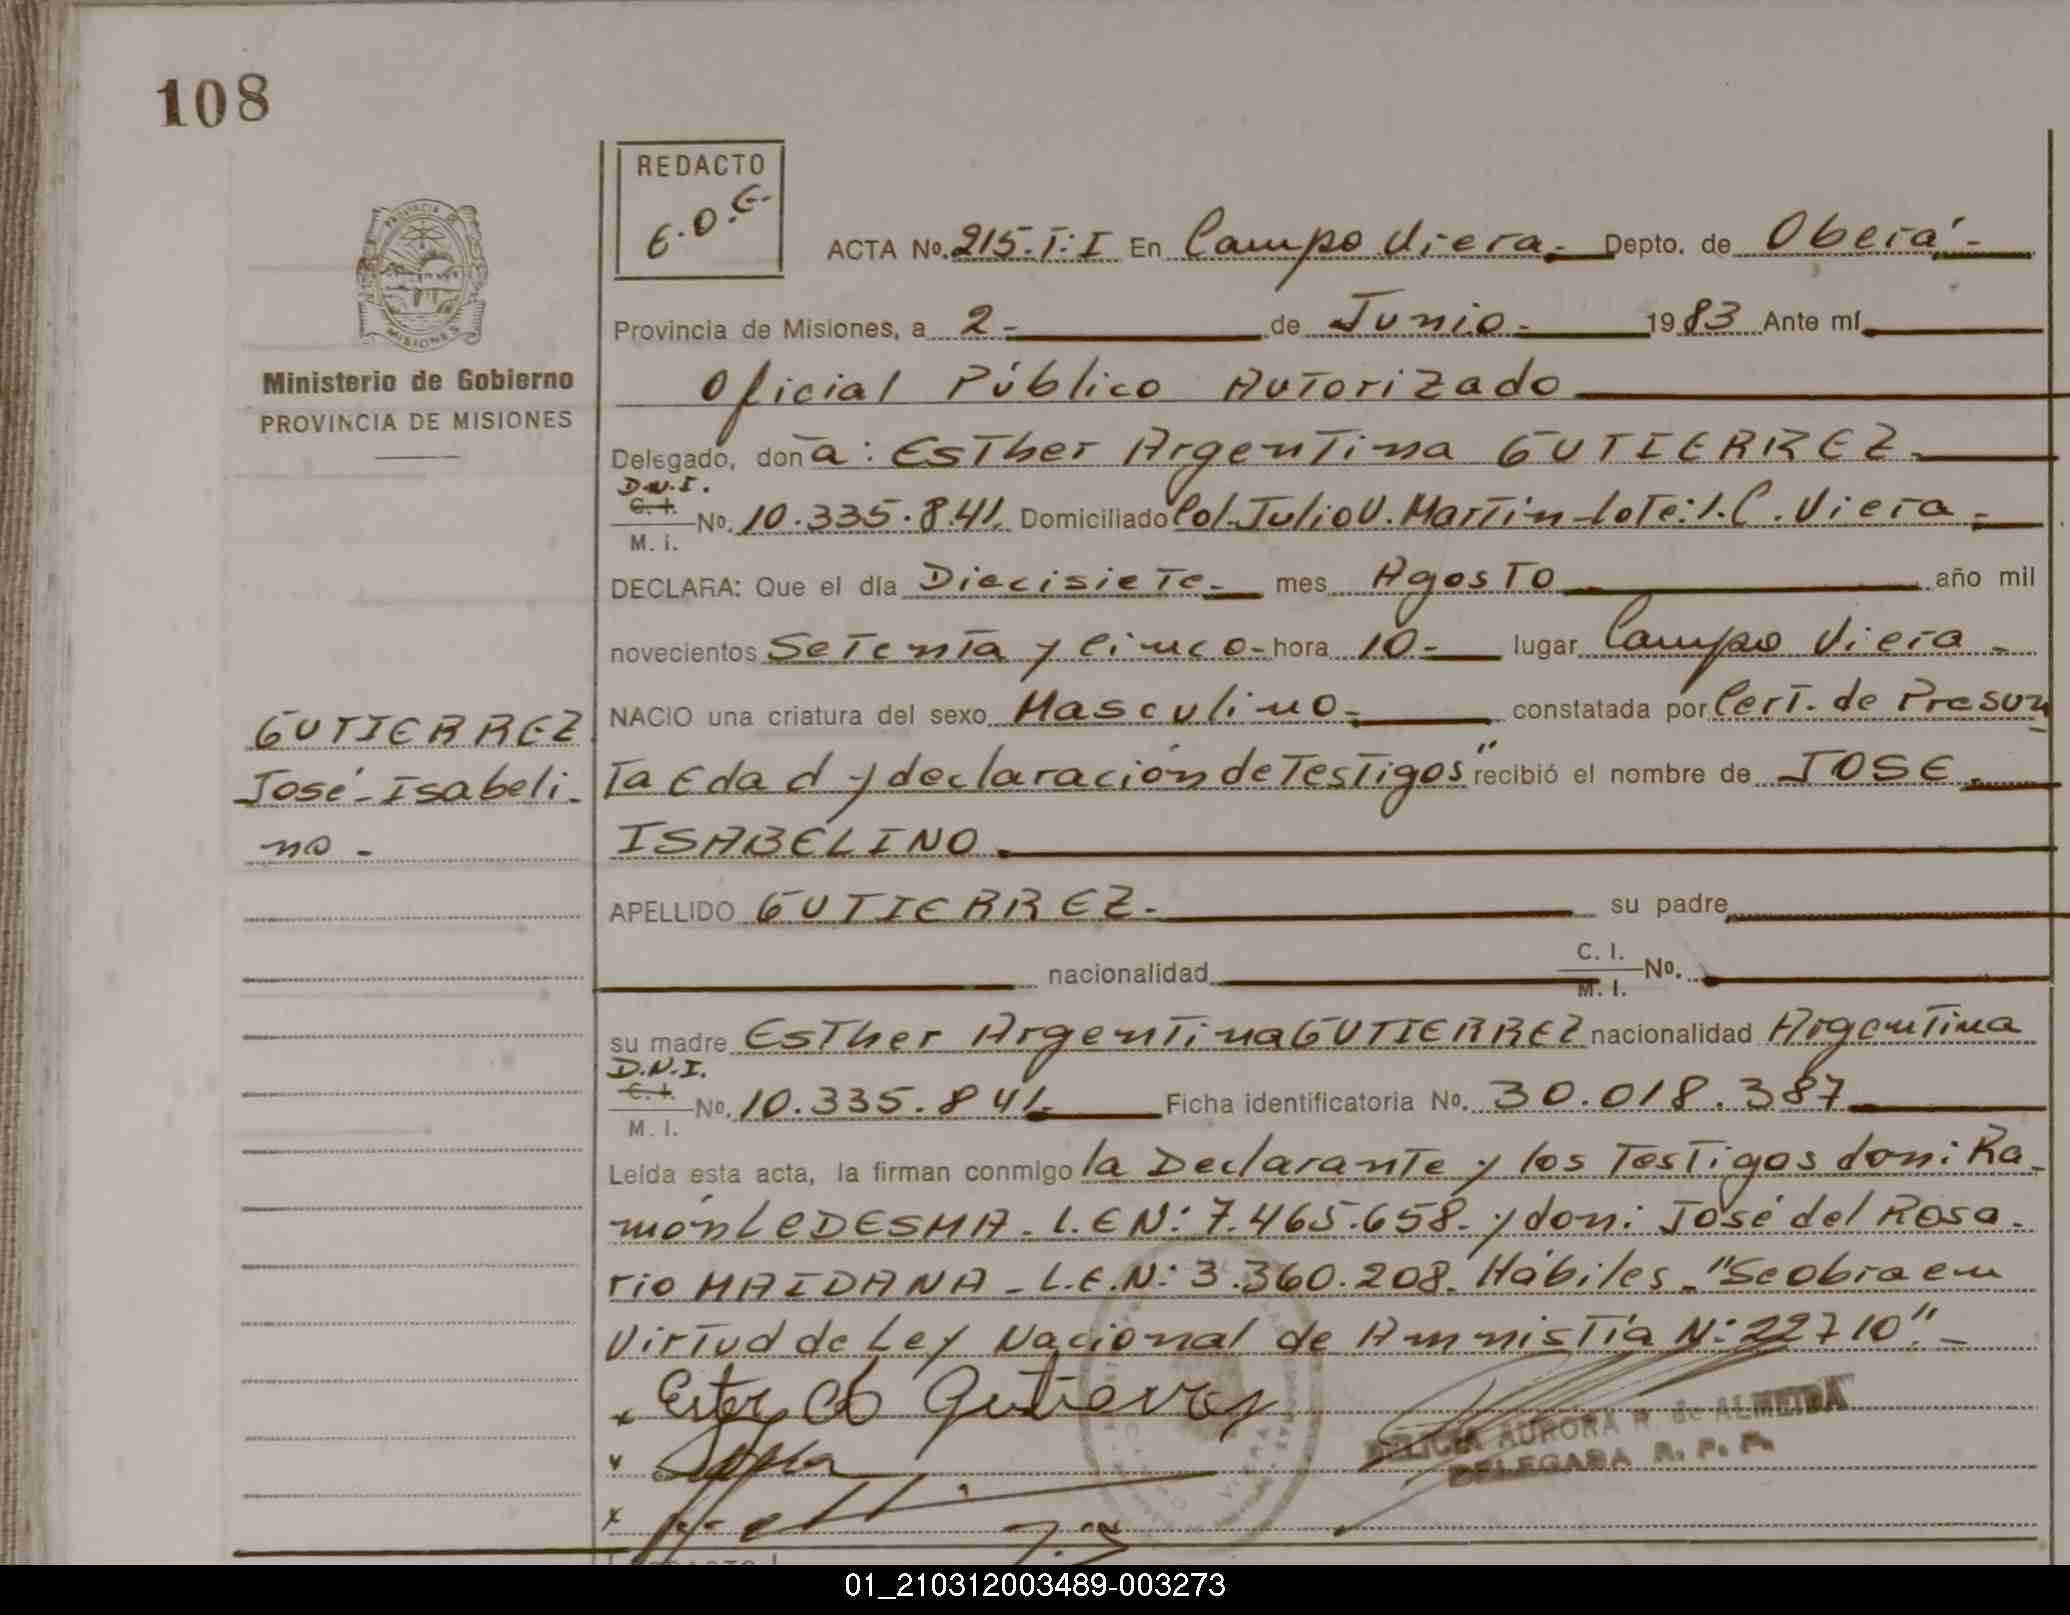 108
REDACTO
G.O.E.
ACTA No. 215.T:I En Campo Viera.- Depto. de Oberá.-
Provincia de Misiones, a 2.- de Junio.- 1983 Ante mí
Ministerio de Gobierno
PROVINCIA DE MISIONES
Oficial Público Autorizado
Delegado, doña: Esther Argentina GUTIERREZ.
D.N.I.
C. I.
M. i. No. 10.335.841. Domiciliado Col. Julio U. Martin-lote:1.C. Viera.-
DECLARA: Que el día Diecisiete.- mes Agosto año mil
novecientos Setenta y Cinco.- hora 10.- lugar Campo Viera.-
NACIO una criatura del sexo Masculino.- constatada por Cert. de Presun
ta Edad y declaración de Testigos" recibió el nombre de JOSE.
ISABELINO.
GUTIERREZ
José-Isabeli-
no-
APELLIDO GUTIERREZ.- su padre
nacionalidad C. I.
M. I. No.
su madre Esther Argentina GUTIERREZ nacionalidad Argentina
D.N.I.
C. I.
M. I. No. 10.335.841. Ficha identificatoria No. 30.018.387
Leída esta acta, la firman conmigo la Declarante y los Testigos don: Ra-
món LEDESMA. L.E N: 7.465.658. y don: José del Rosa-
rio MAIDANA - L.E.N: 3.360.208. Hábiles. "Se obra en
Virtud de Ley Nacional de Amnistía N: 22710".-
x Ester Gutierrez
DELICIA AURORA R. de ALMEIDA
DELEGADA R. P. P.
01_210312003489-003273